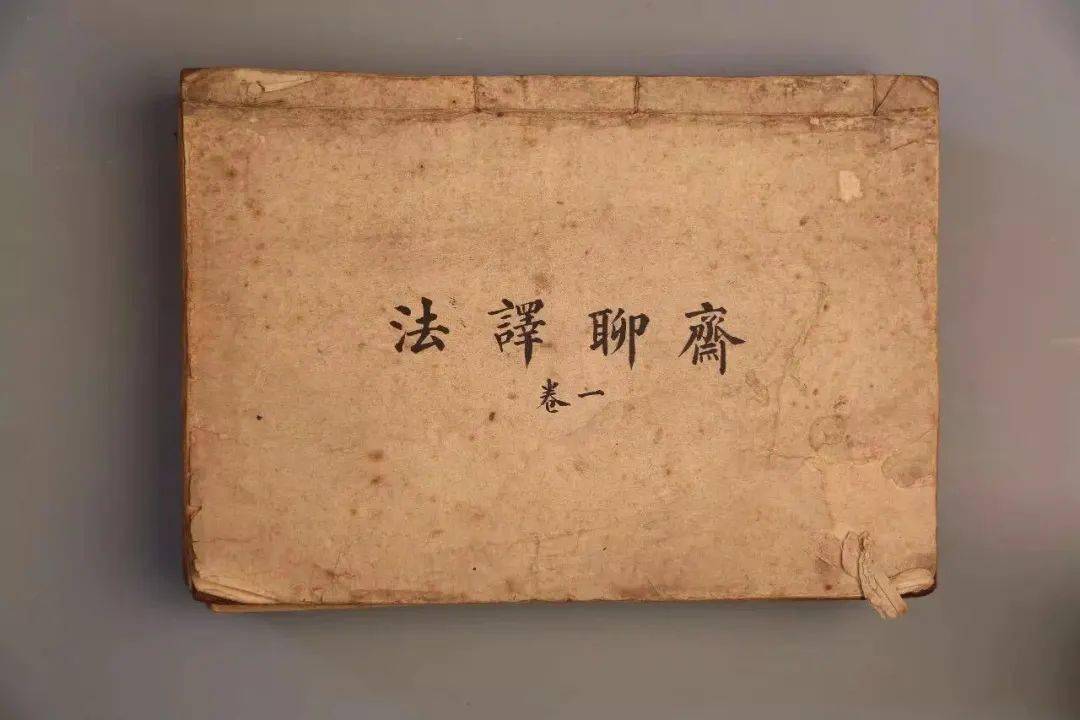 法譯聊齋
卷一